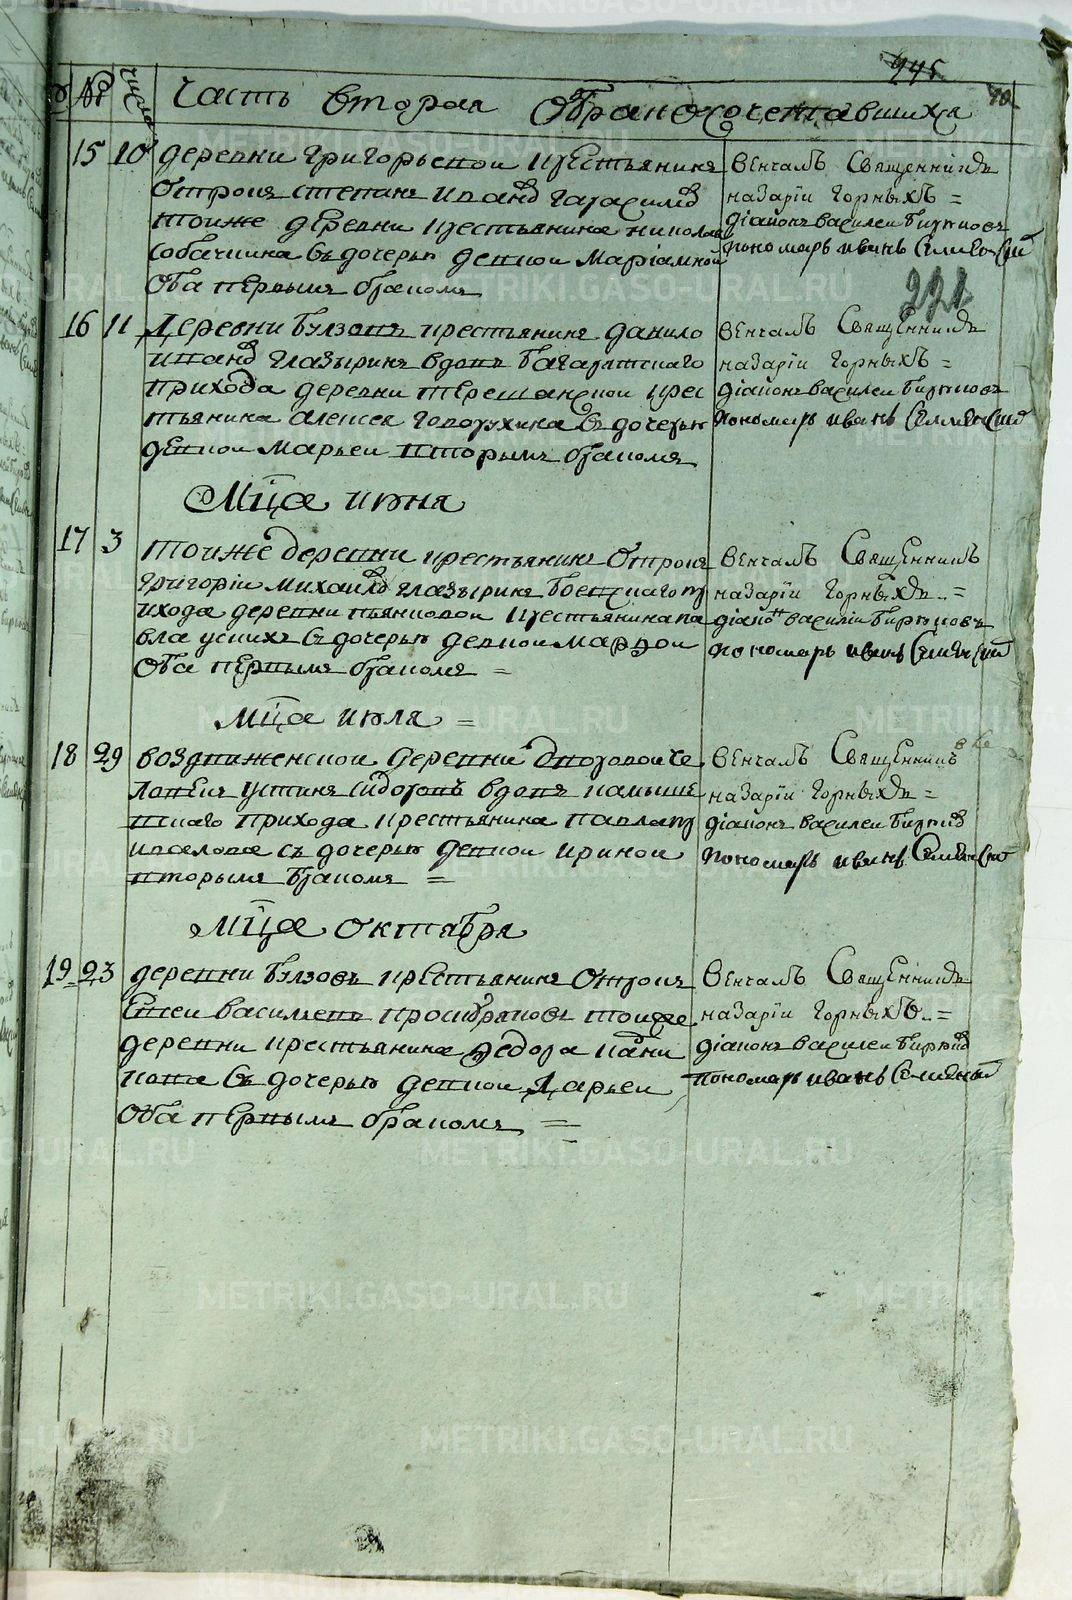 945
№ число Часть вторая О бракосочетавшихся 40
15 10 деревни григорьевской крестьянинъ
отрокъ степанъ ивановъ гарасимовъ
тойже деревни крестьянина николая
собачкина съ дочерью девкой мариамной
оба первымъ бракомъ
венчалъ Священникъ
назарiй горныхъ =
дiаконъ василей бирюковъ
пономарь иванъ Селивенский
221
16 11 Деревни бузовъ крестьянинъ данило
ивановъ глазыринъ вдовъ багаряцкаго
прихода деревни крес
тьянина алексея говорухина съ дочерью
девкой марьей вторымъ бракомъ
венчалъ Священникъ
назарiи горныхъ =
дiаконъ василей бирюковъ
пономарь иванъ
Мца июня
17 3 тоиже деревни крестьянинъ отрокъ
григорiй михайловъ глазыринъ пр
ихода деревни пьянковой крестьянина па
вла съ дочерью девкой марфой
оба первымъ бракомъ =
венчалъ Священникъ
назарiй горныхъ =
дiаконъ василiй бирюковъ
пономарь иванъ
Мца июля =
18 29 воздвиженской деревни че
ловекъ устинъ сидоровъ вдовъ камыше
вскаго прихода крестьянина павла
съ дочерью девкой ириной
вторымъ бракомъ =
венчалъ Священникъ
назарiи горныхъ =
дiаконъ василей бирюковъ
пономарь иванъ
Мца октября
19 23 деревни бузовъ крестьянинъ отрокъ
евсей васильевъ тойже
деревни крестьянина федора
съ дочерью девкой Дарьей
оба первымъ бракомъ =
венчалъ Священникъ
назарiи горныхъ =
дiаконъ василей бирюковъ
пономарь иванъ
METRIKI.GASO-URAL.RU